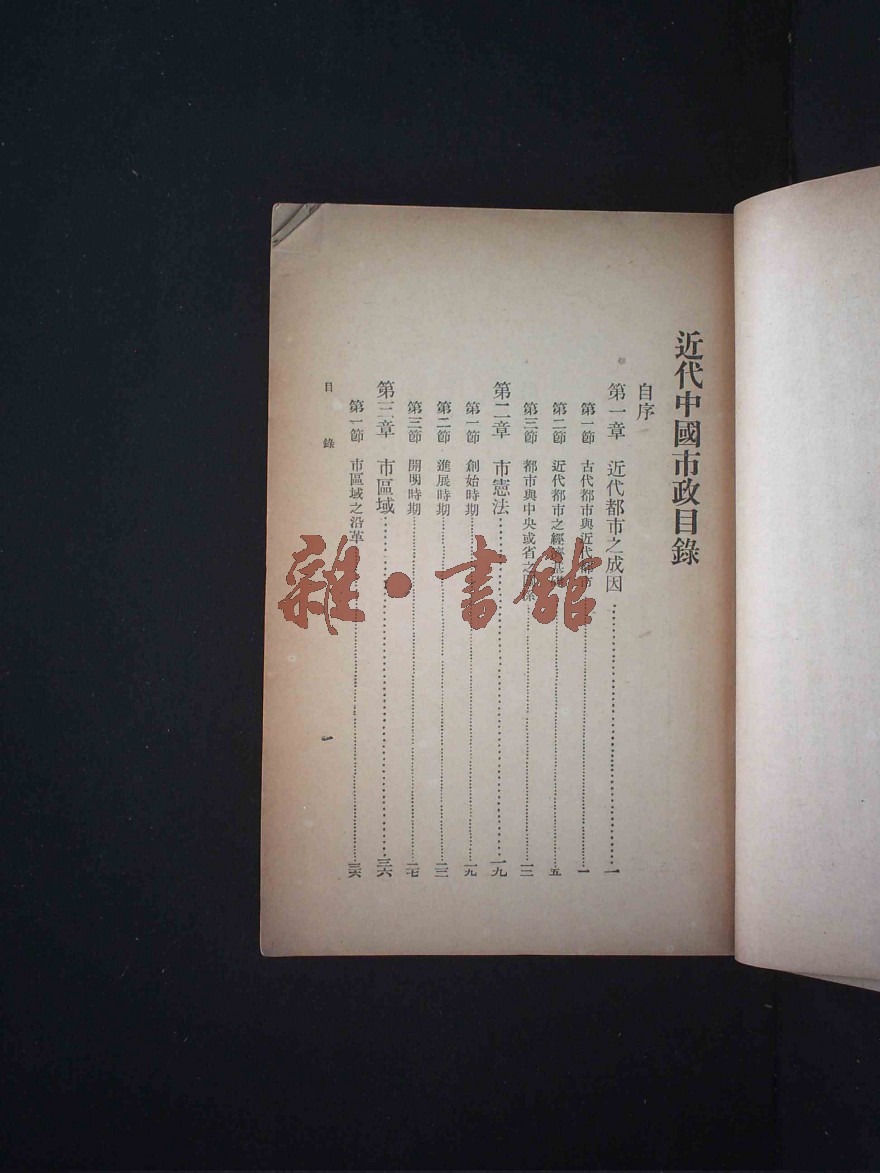 近代中國市政目錄
自序
第一章 近代都市之成因 一
第一節 古代都市與近代都市 一
第二節 近代都市之經濟基礎 五
第三節 都市與中央或省之關係 一三
第二章 市憲法 一九
第一節 創始時期 一九
第二節 進展時期 二三
第三節 開明時期 二七
第三章 市區域 三六
第一節 市區域之沿革 三六
目錄 一
雜·書館